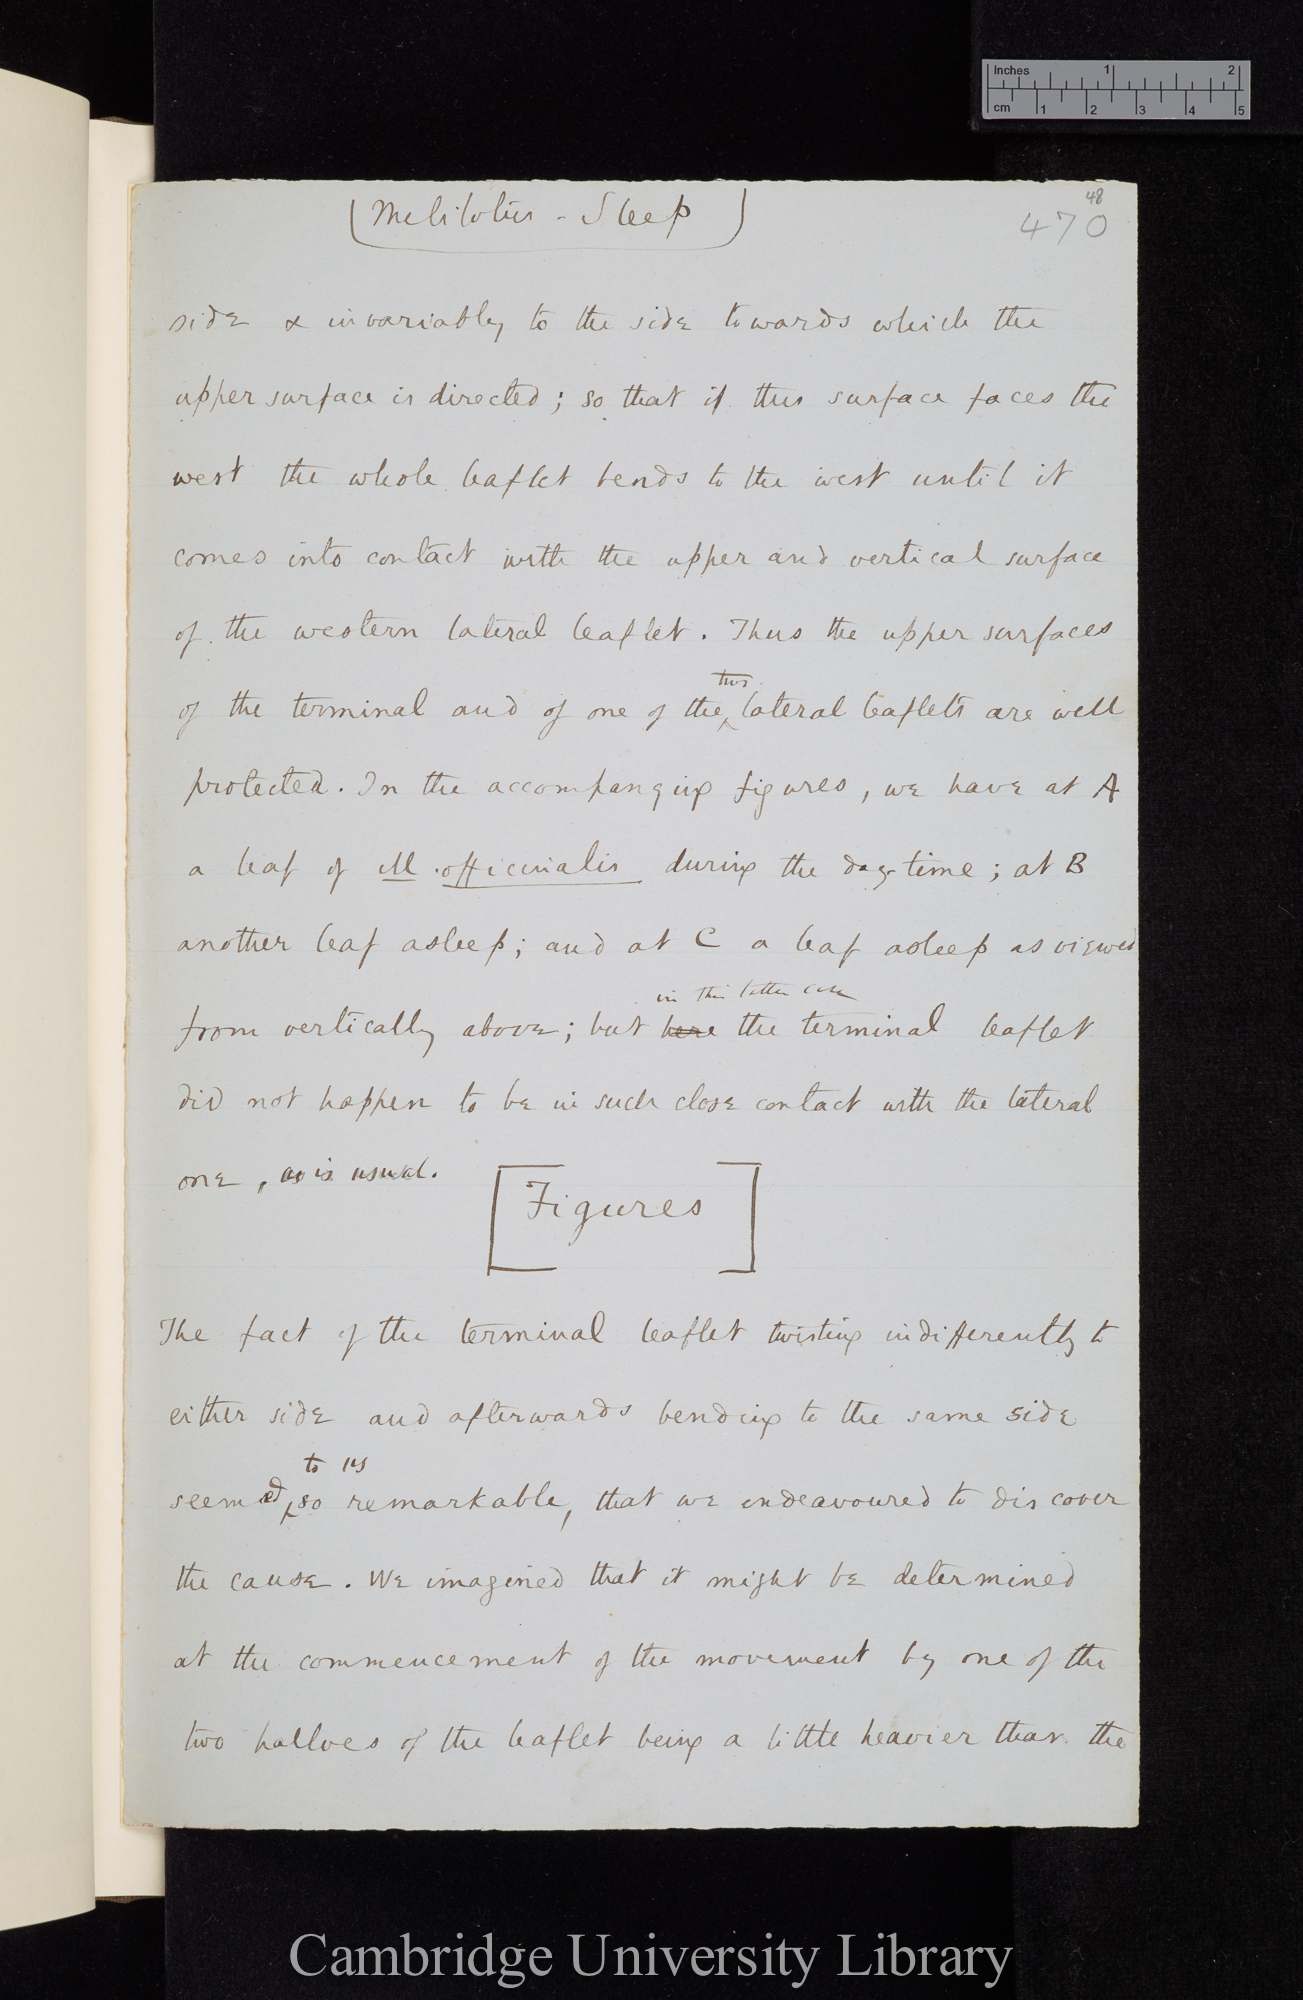 Inches 1 2
cm 1 2 3 4 5
48
Melilotus - Sleep
470
side & invariably to the side towards which the
upper surface is directed; so that if this surface faces the
west the whole leaflet bends to the west until it
comes into contact with the upper and vertical surface
of the western lateral leaflet. Thus the upper surfaces
two
of the terminal and of one of the lateral leaflets are well
protected. In the accompanying figures, we have at A
a leaf of M. officinalis during the day-time; at B
another leaf asleep; and at C a leaf asleep as viewed
in this latter case
from vertically above; but here the terminal leaflet
did not happen to be in such close contact with the lateral
one, as is usual.
[Figures]
The fact of the terminal leaflet twisting indifferently to
either side and afterwards bending to the same side
to us
seemed so remarkable, that we endeavoured to discover
the cause. We imagined that it might be determined
at the commencement of the movement by one of the
two halves of the leaflet being a little heavier than the
Cambridge University Library